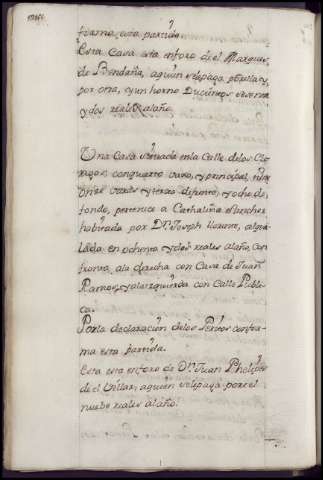 firma esta partida
Esta Casa esta en foro de el Marques
de Bendaña, aquien se le paga por ella, y
por otra, y un horno Ducientos sesenta
y dos reales al año.
Una Casa situada en la Calle de los
con quarto vajo, y principal, tiene
onze varas y terzia de frente, y ocho de
fondo, pertenece a Cathalina Sanchez
havitada por Dn. Joseph Llorente,
en ochenta y dos reales al año, con
fronta, ala derecha con Casa de Juan
Ramos, y ala izquierda con Calle Publi-
ca.
Por la declaracion de los Peritos confir-
ma esta partida.
Esta esta en foro de Dn. Juan Phelipe
de el Villar, aquien se le paga por el
nuebe reales al año.